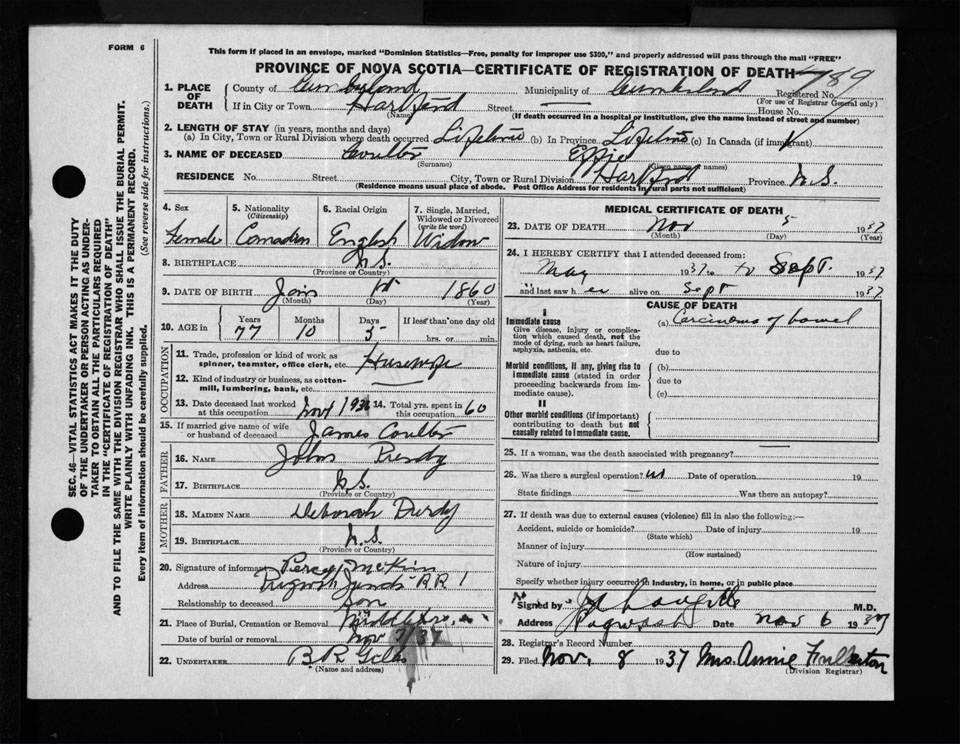 FORM 6
This form if placed in an envelope, marked "Dominion Statistics—Free, penalty for improper use $300," and properly addressed will pass through the mail "FREE"
PROVINCE OF NOVA SCOTIA—CERTIFICATE OF REGISTRATION OF DEATH 789
1. PLACE OF DEATH County of Cumberland Municipality of Cumberland Registered No.
(For use of Registrar General only)
If in City or Town Hartford Street — House No.
(Name) (If death occurred in a hospital or institution, give the name instead of street and number)
2. LENGTH OF STAY (in years, months and days)
(a) In City, Town or Rural Division where death occurred Lifetime (b) In Province Lifetime (c) In Canada (if immigrant)
3. NAME OF DECEASED Coulter Effie
(Surname) (Given name or names)
RESIDENCE No. Street City, Town or Rural Division Hartford Province N.S.
(Residence means usual place of abode. Post Office Address for residents in rural parts not sufficient)
SEC. 46—VITAL STATISTICS ACT MAKES IT THE DUTY
OF THE UNDERTAKER OR PERSON ACTING AS UNDER-
TAKER TO OBTAIN ALL THE PARTICULARS REQUIRED
IN THE "CERTIFICATE OF REGISTRATION OF DEATH"
AND TO FILE THE SAME WITH THE DIVISION REGISTRAR WHO SHALL ISSUE THE BURIAL PERMIT.
WRITE PLAINLY WITH UNFADING INK. THIS IS A PERMANENT RECORD.
Every item of information should be carefully supplied. (See reverse side for instructions.)
4. Sex 5. Nationality (Citizenship) 6. Racial Origin 7. Single, Married, Widowed or Divorced (write the word)
Female Canadian English Widow
8. BIRTHPLACE N.S.
(Province or Country)
9. DATE OF BIRTH Jan 1st 1860
(Month) (Day) (Year)
10. AGE in Years Months Days If less than one day old
77 10 5 hrs. or min.
OCCUPATION
11. Trade, profession or kind of work as spinner, teamster, office clerk, etc. Housewife
12. Kind of industry or business, as cotton-mill, lumbering, bank, etc. —
13. Date deceased last worked at this occupation Nov 1936 14. Total yrs. spent in this occupation 60
15. If married give name of wife or husband of deceased James Coulter
FATHER
16. NAME John Purdy
17. BIRTHPLACE N.S.
(Province or Country)
MOTHER
18. MAIDEN NAME Deborah Purdy
19. BIRTHPLACE N.S.
(Province or Country)
20. Signature of informant Percy
Address R.R. 1
Relationship to deceased son
21. Place of Burial, Cremation or Removal
Date of burial or removal Nov 7/37
22. UNDERTAKER B R
(Name and address)
MEDICAL CERTIFICATE OF DEATH
23. DATE OF DEATH Nov 5 1937
(Month) (Day) (Year)
24. I HEREBY CERTIFY that I attended deceased from:
May 1937 to to Sept. 1937
and last saw her alive on Sept 1937
CAUSE OF DEATH
I
Immediate cause (a) Carcinoma of bowel
Give disease, injury or complica-
tion which caused death, not the
mode of dying, such as heart failure,
asphyxia, asthenia, etc. due to
Morbid conditions, if any, giving rise to (b)
immediate cause (stated in order due to
proceeding backwards from im-
mediate cause). (c)
II
Other morbid conditions (if important)
contributing to death but not
causally related to immediate cause.
25. If a woman, was the death associated with pregnancy? —
26. Was there a surgical operation? no Date of operation 19
State findings — Was there an autopsy?
27. If death was due to external causes (violence) fill in also the following:—
Accident, suicide or homicide? Date of injury 19
(State which)
Manner of injury
(How sustained)
Nature of injury
Specify whether injury occurred in industry, in home, or in public place
Signed by M.D.
Address Pugwash Date Nov 6 1937
28. Registrar's Record Number
29. Filed Nov. 8 1937 Mrs. Annie Fullerton
(Division Registrar)